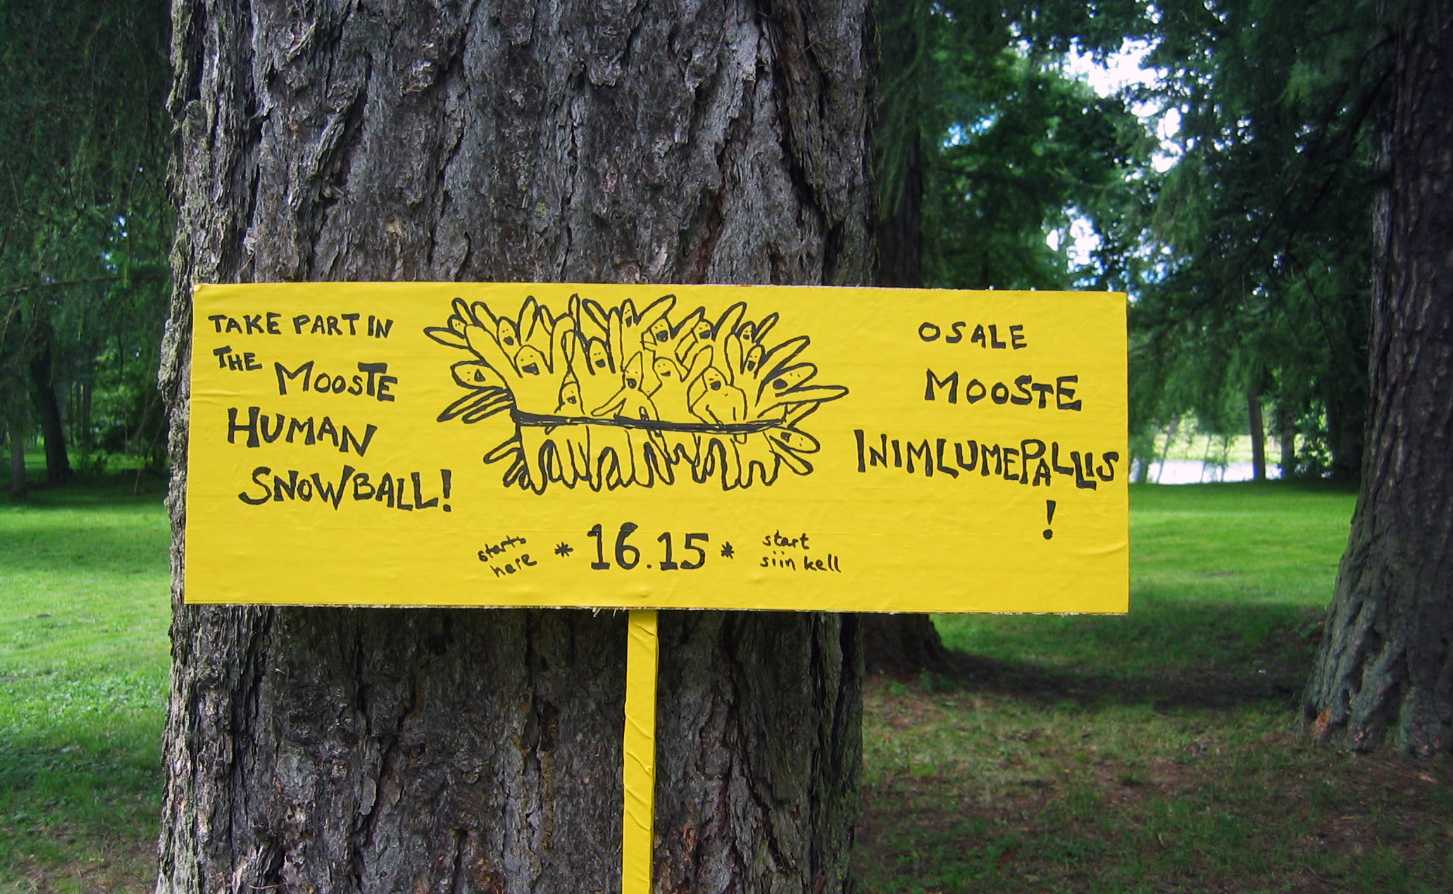 TAKE PART IN
THE MOOSTE
HUMAN
SNOWBALL!
OSALE
MOOSTE
INIMLUMEPALLIS
!
starts
here
* 16.15 *
start
siin kell